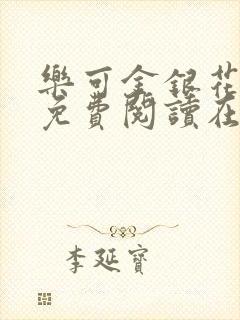 樂可金銀花
免費閱讀在
李延寶